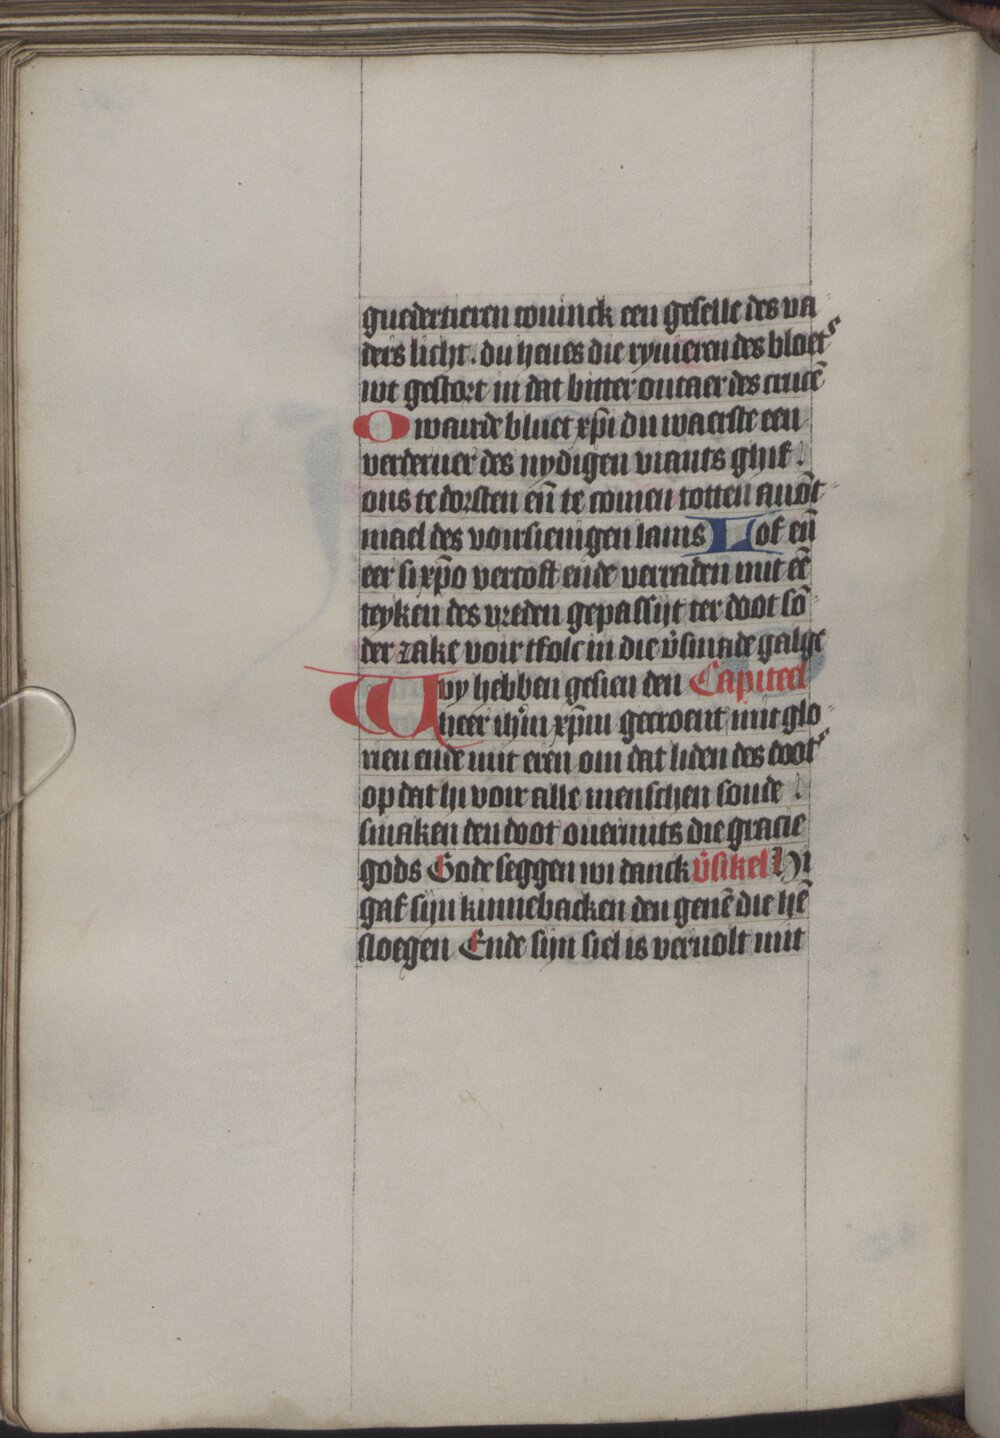 guedertieren coninck een geselle des va
ders licht. du heues die rymeren des bloets
wt gestort in dat bitter outaer des crucē
O waerde bluet xp̄i du waerste een
verderuer des nydigen viants ghif
ons te dorsten eñ te comen totten auōt
mael des vonsienigen lams Lof eñ
eer si xp̄o vercoft ende verraden mit eē
teyken des vreden gepassijt ter doot sō
der zake voir tfolc in die v̄smade galge
Wy hebben gesien den Capiteel
heer ih̄m xp̄m gecroent mit glo
rien ende mit eren om dat liden des doots
op dat hi voir alle menschen soude
smaken den doot ouermits die gracie
gods Gode seggen wi danck v̄sikel Hi
gaf sijn kinnebacken den genē die hē
sloegen Ende sijn siel is veruolt mit